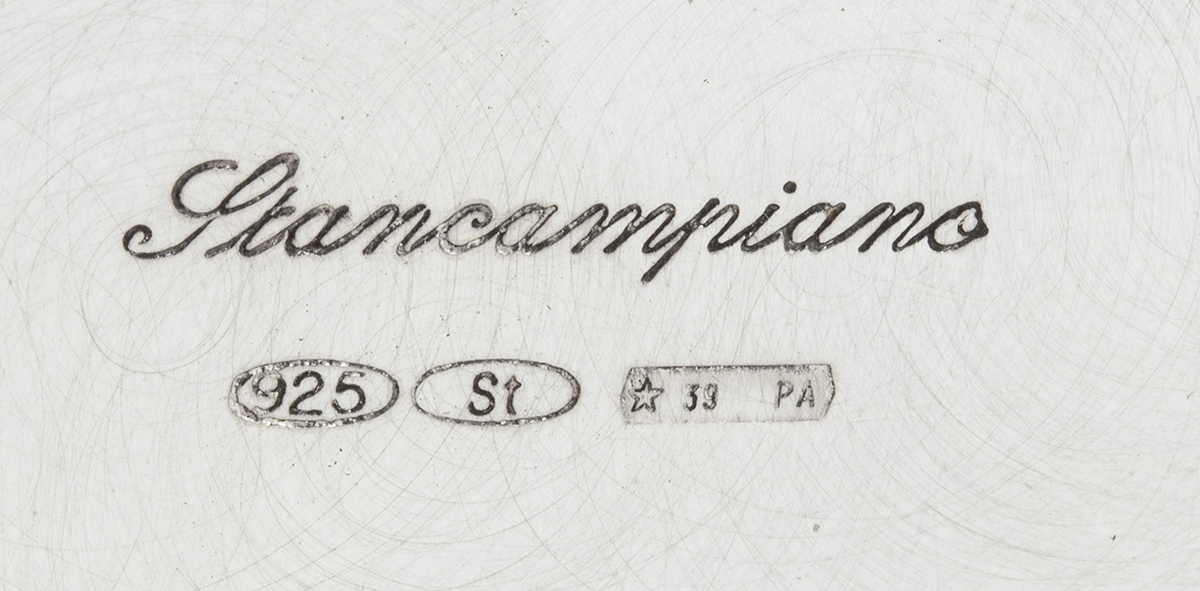 Stancampiano
925 St ☆ 39 PA